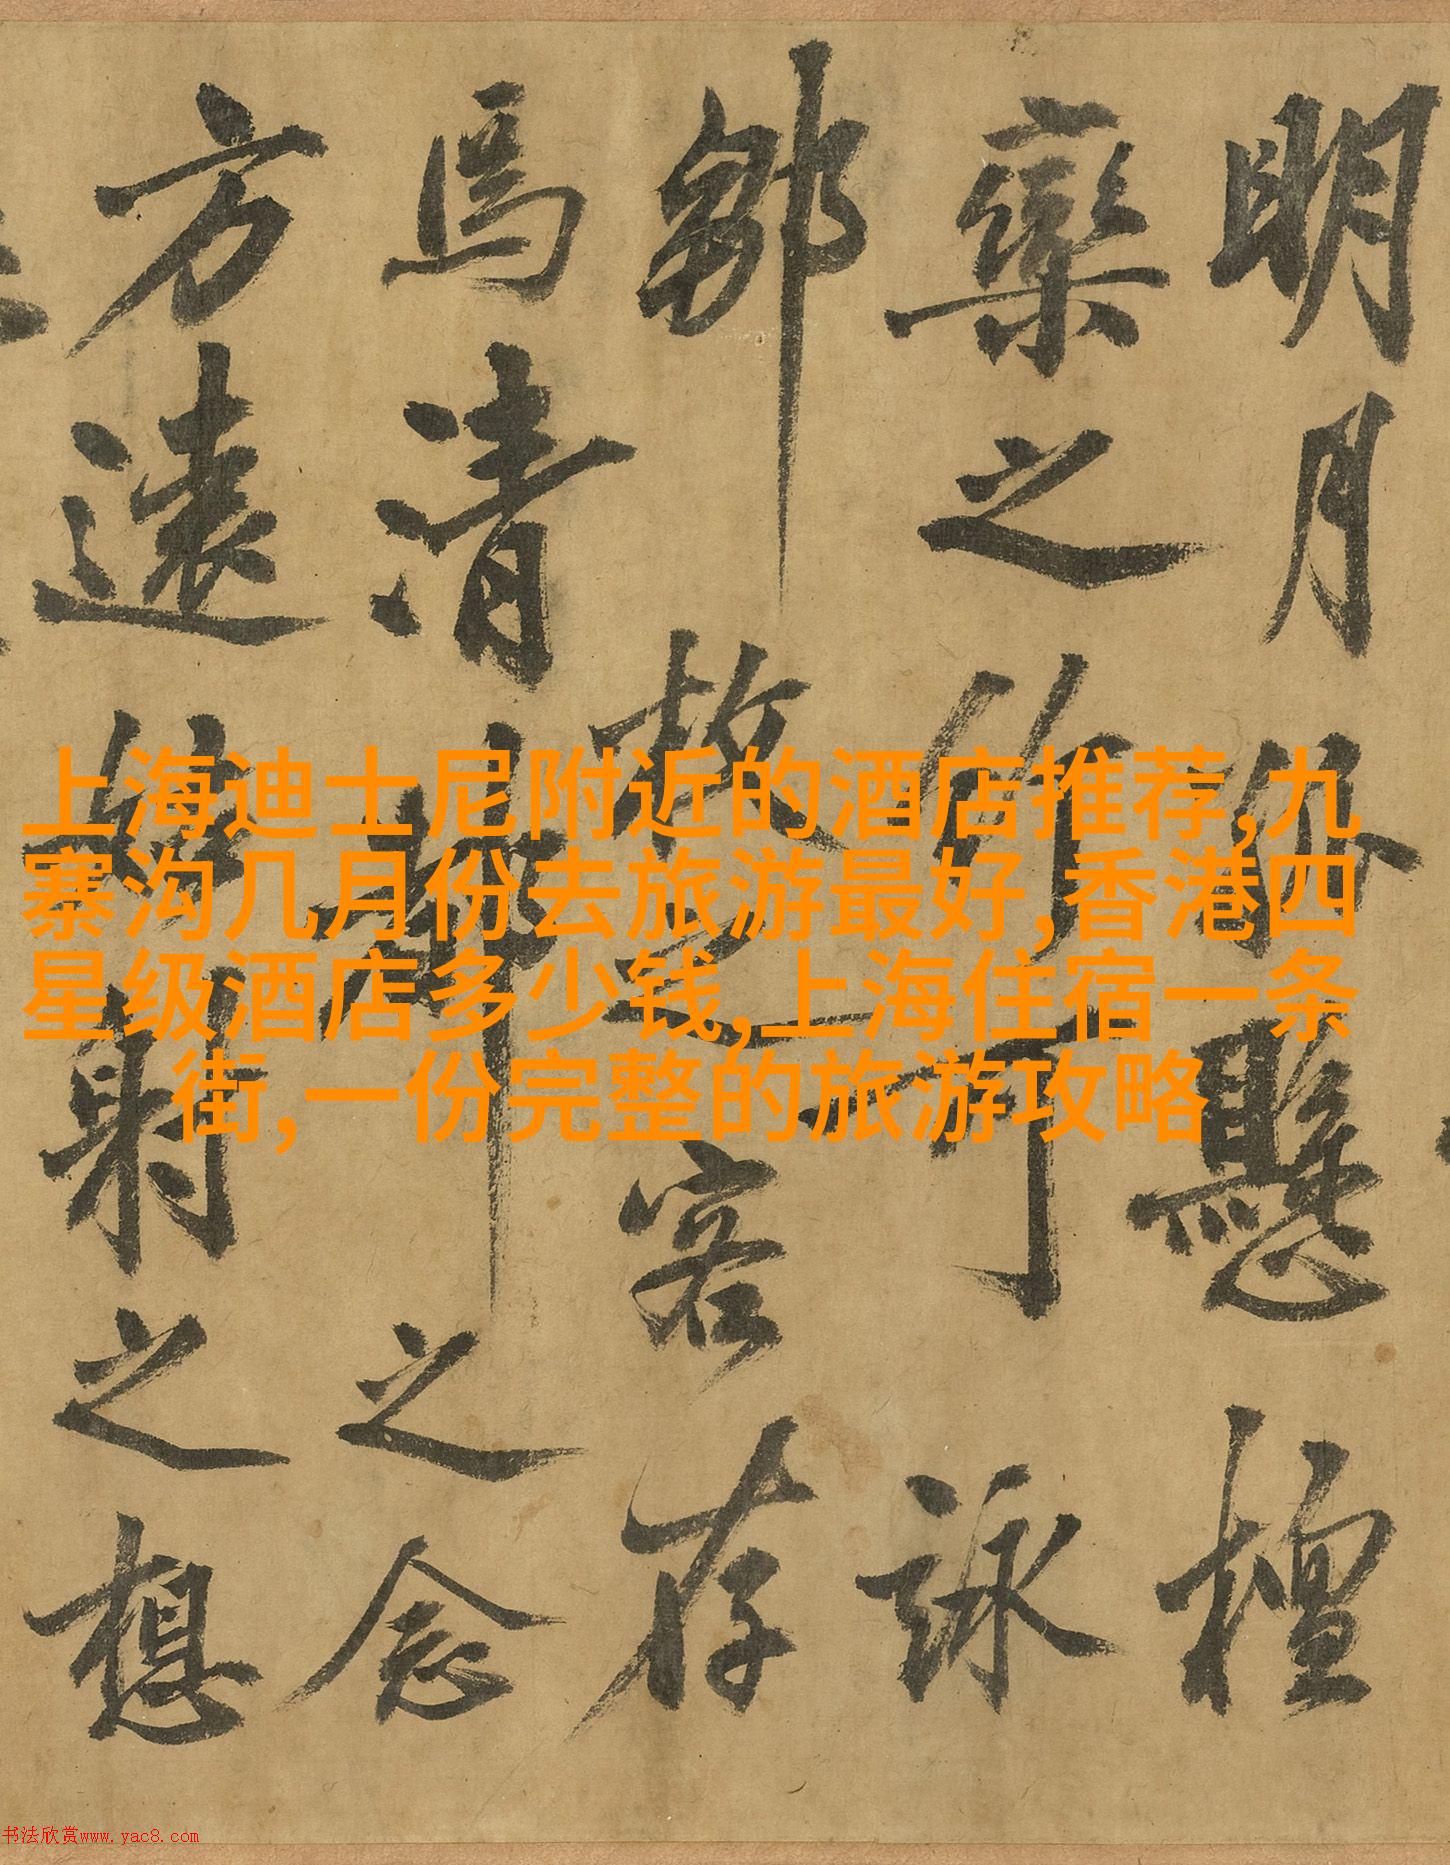 明月懸檀
欒之作可詠
鄒枚之客存
焉清之念
方遠射之想
上海迪士尼附近的酒店推荐,九
寨沟几月份去旅游最好,香港四
星级酒店多少钱,上海住宿一条
街,一份完整的旅游攻略
书法欣赏www.yac8.com